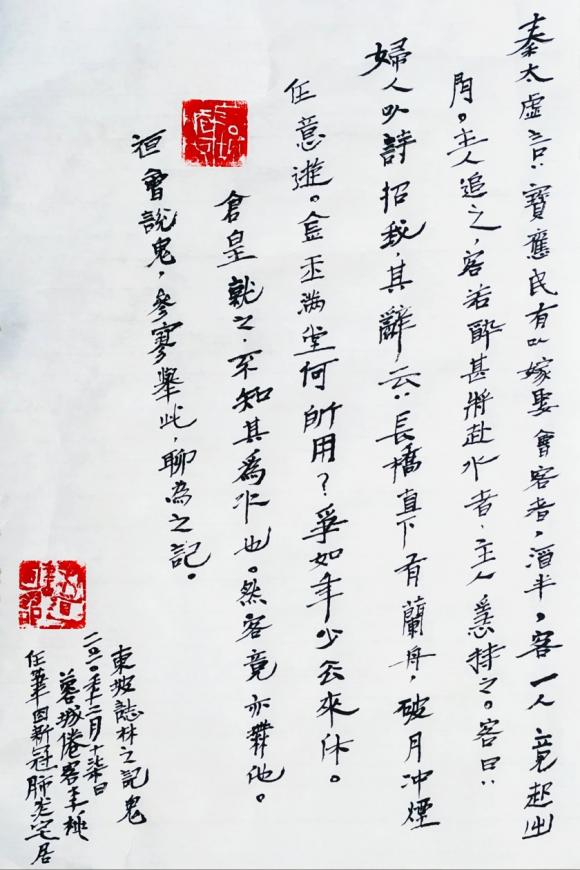 秦太虚言：寶應民有以嫁娶會客者，酒半，客一人竟起出
門。主人追之，客若醉甚將赴水者，主人急持之。客曰：
婦人以詩招我，其辭云：長橋直下有蘭舟，破月冲煙
任意遊。金玉满堂何所用？爭如年少去來休。
倉皇就之，不知其為水也。然客竟亦無他。
夜會說鬼，參寥舉此，聊為之記。
東坡誌林之記鬼
二〇二〇年二月十柒日
蓉城倦客李
任筆因新冠肺炎宅居